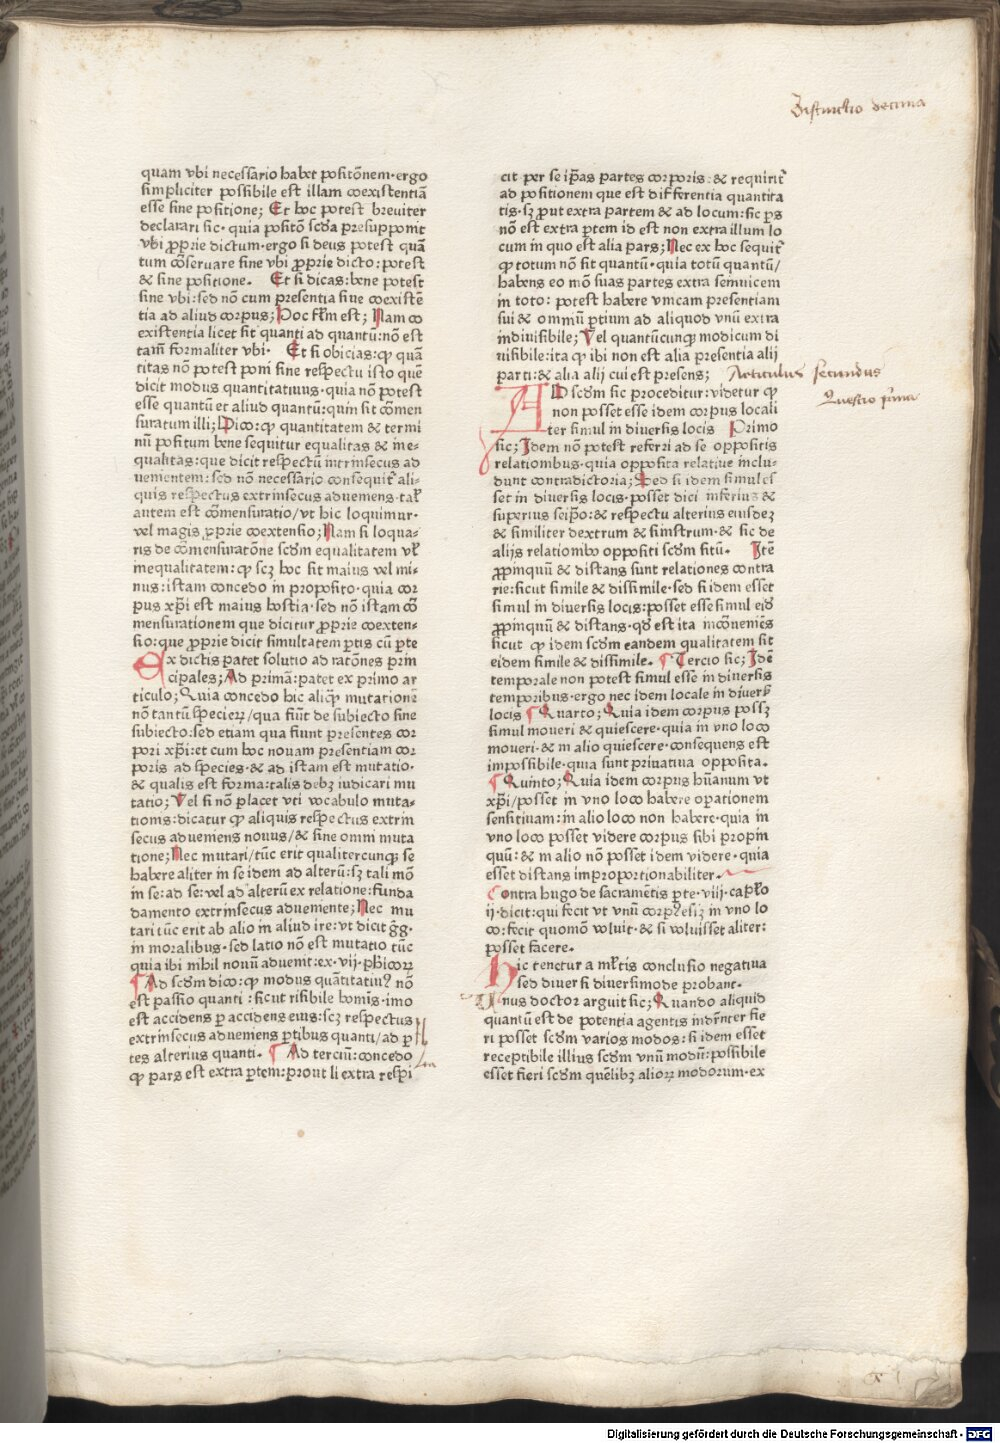 Distinctio decima
quam vbi necessario habet positōnem·ergo
simpliciter possibile est illam coexistentiā
esse sine positione; Et hoc potest breuiter
declarari sic·quia positō scđa presupponit
vbi ꝓprie dictum·ergo si deus potest quā
tum ōseruare sine vbi ꝓprie dicto:potest
& sine positione· Et si dicas:bene potest
sine vbi:sed nō cum presentia siue coexistē
tia ad aliud corpus; Hoc fłm est; Nam co
existentia licet sit quanti ad quantū:nō est
tam̄ formaliter vbi· Et si obicias:ꝙ quā
titas nō potest poni sine respectu isto quē
dicit modus quantitatiuus·quia nō potest
esse quantū et aliud quantū:quin sit cōmen
suratum illi; Dico:ꝙ quantitatem & termi
nū positum bene sequitur equalitas & ine-
qualitas:que dicit respectū intrinsecus ad
uenientem:sed nō necessario consequit̄ ali-
quis respectus extrinsecus adueniens·tał
autem est cōmensuratio/vt hic loquimur·
vel magis ꝓprie coextensio; Nam si loqua-
ris de cōmensuratōne scđm equalitatem vł
inequalitatem:ꝙ scꝫ hoc sit maius vel mi-
nus:istam concedo in proposito·quia cor
pus xp̄i est maius hostia·sed nō istam cō
mensurationem que dicitur ꝓprie coexten-
sio:que ꝓprie dicit simultatem ꝑtis cū ꝑte
Ex dictis patet solutio ad ratōnes prin
cipales; Ad primā:patet ex primo ar
ticulo; Quia concedo hic aliqꝙ mutationē
nō tantū specieꝝ/qua fiūt de subiecto sine
subiecto:sed etiam qua fiunt presentes cor
pori xp̄i:et cum hoc nouam presentiam cor
poris ad species·& ad istam est mutatio·
& qualis est forma:talis debꝫ iudicari mu
tatio; Vel si nō placet vti vocabulo muta-
tionis:dicatur ꝙ aliquis respectus extrin
secus adueniens nouus/& sine omni muta
tione; Nec mutari/tūc erit qualitercunqꝫ se
habere aliter in se idem ad alterū:sꝫ tali mō
in se:ad se:vel ad alterū ex relatione:funda
damento extrinsecus adueniente; Nec mu
tari tūc erit ab alio in aliud ire:vt dicit ḡg·
in moralibus·sed latio nō est mutatio tūc
quia ibi nihil nouū aduenit:ex·vij·ph̄icoꝝ
¶Ad scđm dico:ꝙ modus quātitatiuꝰ nō
est passio quanti : sicut risibile hoīnis·imo
est accidens ꝑ accidens eius:scꝫ respectus
extrinsecus adueniens ꝑtibus quanti/ad ꝑ
tes alterius quanti· ¶ Ad terciū:concedo
ꝙ pars est extra ꝑtem:prout li extra respi
cit per se ip̄as partes corporis:& requirit̄
ad positionem que est differentia quantita
tis·sꝫ ꝓut extra partem & ad locum:sic ꝑs
nō est extra ꝑtem id est non extra illum lo
cum in quo est alia pars; Nec ex hoc sequit̄
ꝙ totum nō sit quantū·quia totū quantū/
habens eo mō suas partes extra seinuicem
in toto: potest habere vnicam presentiam
sui & omniū ꝑtium ad aliquod vnū extra
indiuisibile; Vel quantūcunqꝫ modicum di
uisibile:ita ꝙ ibi non est alia presentia alij
parti:& alia alij cui est presens; Articulus secundus
Questio prima
AD scđm sic proceditur:videtur ꝙ
non posset esse idem corpus locali
ter simul in diuersis locis Primo
sic; Idem nō potest referri ad se oppositis
relationibus·quia opposita relatiue inclu-
dunt contradictoria; Sed si idem simul es
set in diuersis locis·posset dici inferius &
superius seip̄o:& respectu alterius eiusdeꝫ
& similiter dextrum & sinistrum·& sic de
alijs relationibꝰ oppositi scđm sitū· Itē
ꝓpinquū & distans sunt relationes contra
rie:sicut simile & dissimile·sed si idem esset
simul in diuersis locis:posset esse simul eidē
ꝓpinquū & distans·qđ est ita incōueniēs
sicut ꝙ idem scđm eandem qualitatem sit
eidem simile & dissimile· ¶ Tercio sic; Idē
temporale non potest simul esse in diuersis
temporibus·ergo nec idem locale in diuerł
locis ¶ Quarto; Quia idem corpus possꝫ
simul moueri & quiescere·quia in vno loco
moueri·& in alio quiescere·consequens est
impossibile·quia sunt priuatiua opposita·
¶ Quinto; Quia idem corpus hūanum vt
xp̄i/posset in vno loco habere operationem
sensitiuam:in alio loco non habere·quia in
vno loco posset videre corpus sibi propin
quū:& in alio nō posset idem videre·quia
esset distans improportionabiliter·
Contra hugo de sacramētis ꝑte·viij·capło
ij·dicit:qui fecit vt vnū corpꝰ esꝫ in vno lo
co:fecit quomō voluit·& si voluisset aliter:
posset facere·
Hic tenetur a młtis conclusio negatiua
sed diuersi diuersimode probant·
Vnus doctor arguit sic; Quando aliquid
quantū est de potentia agentis indr̄nter fie
ri posset scđm varios modos:si idem esset
receptibile illius scđm vnū modū:possibile
esset fieri scđm quēlibꝫ alioꝝ modorum·ex
Digitalisierung gefördert durch die Deutsche Forschungsgemeinschaft - DFG